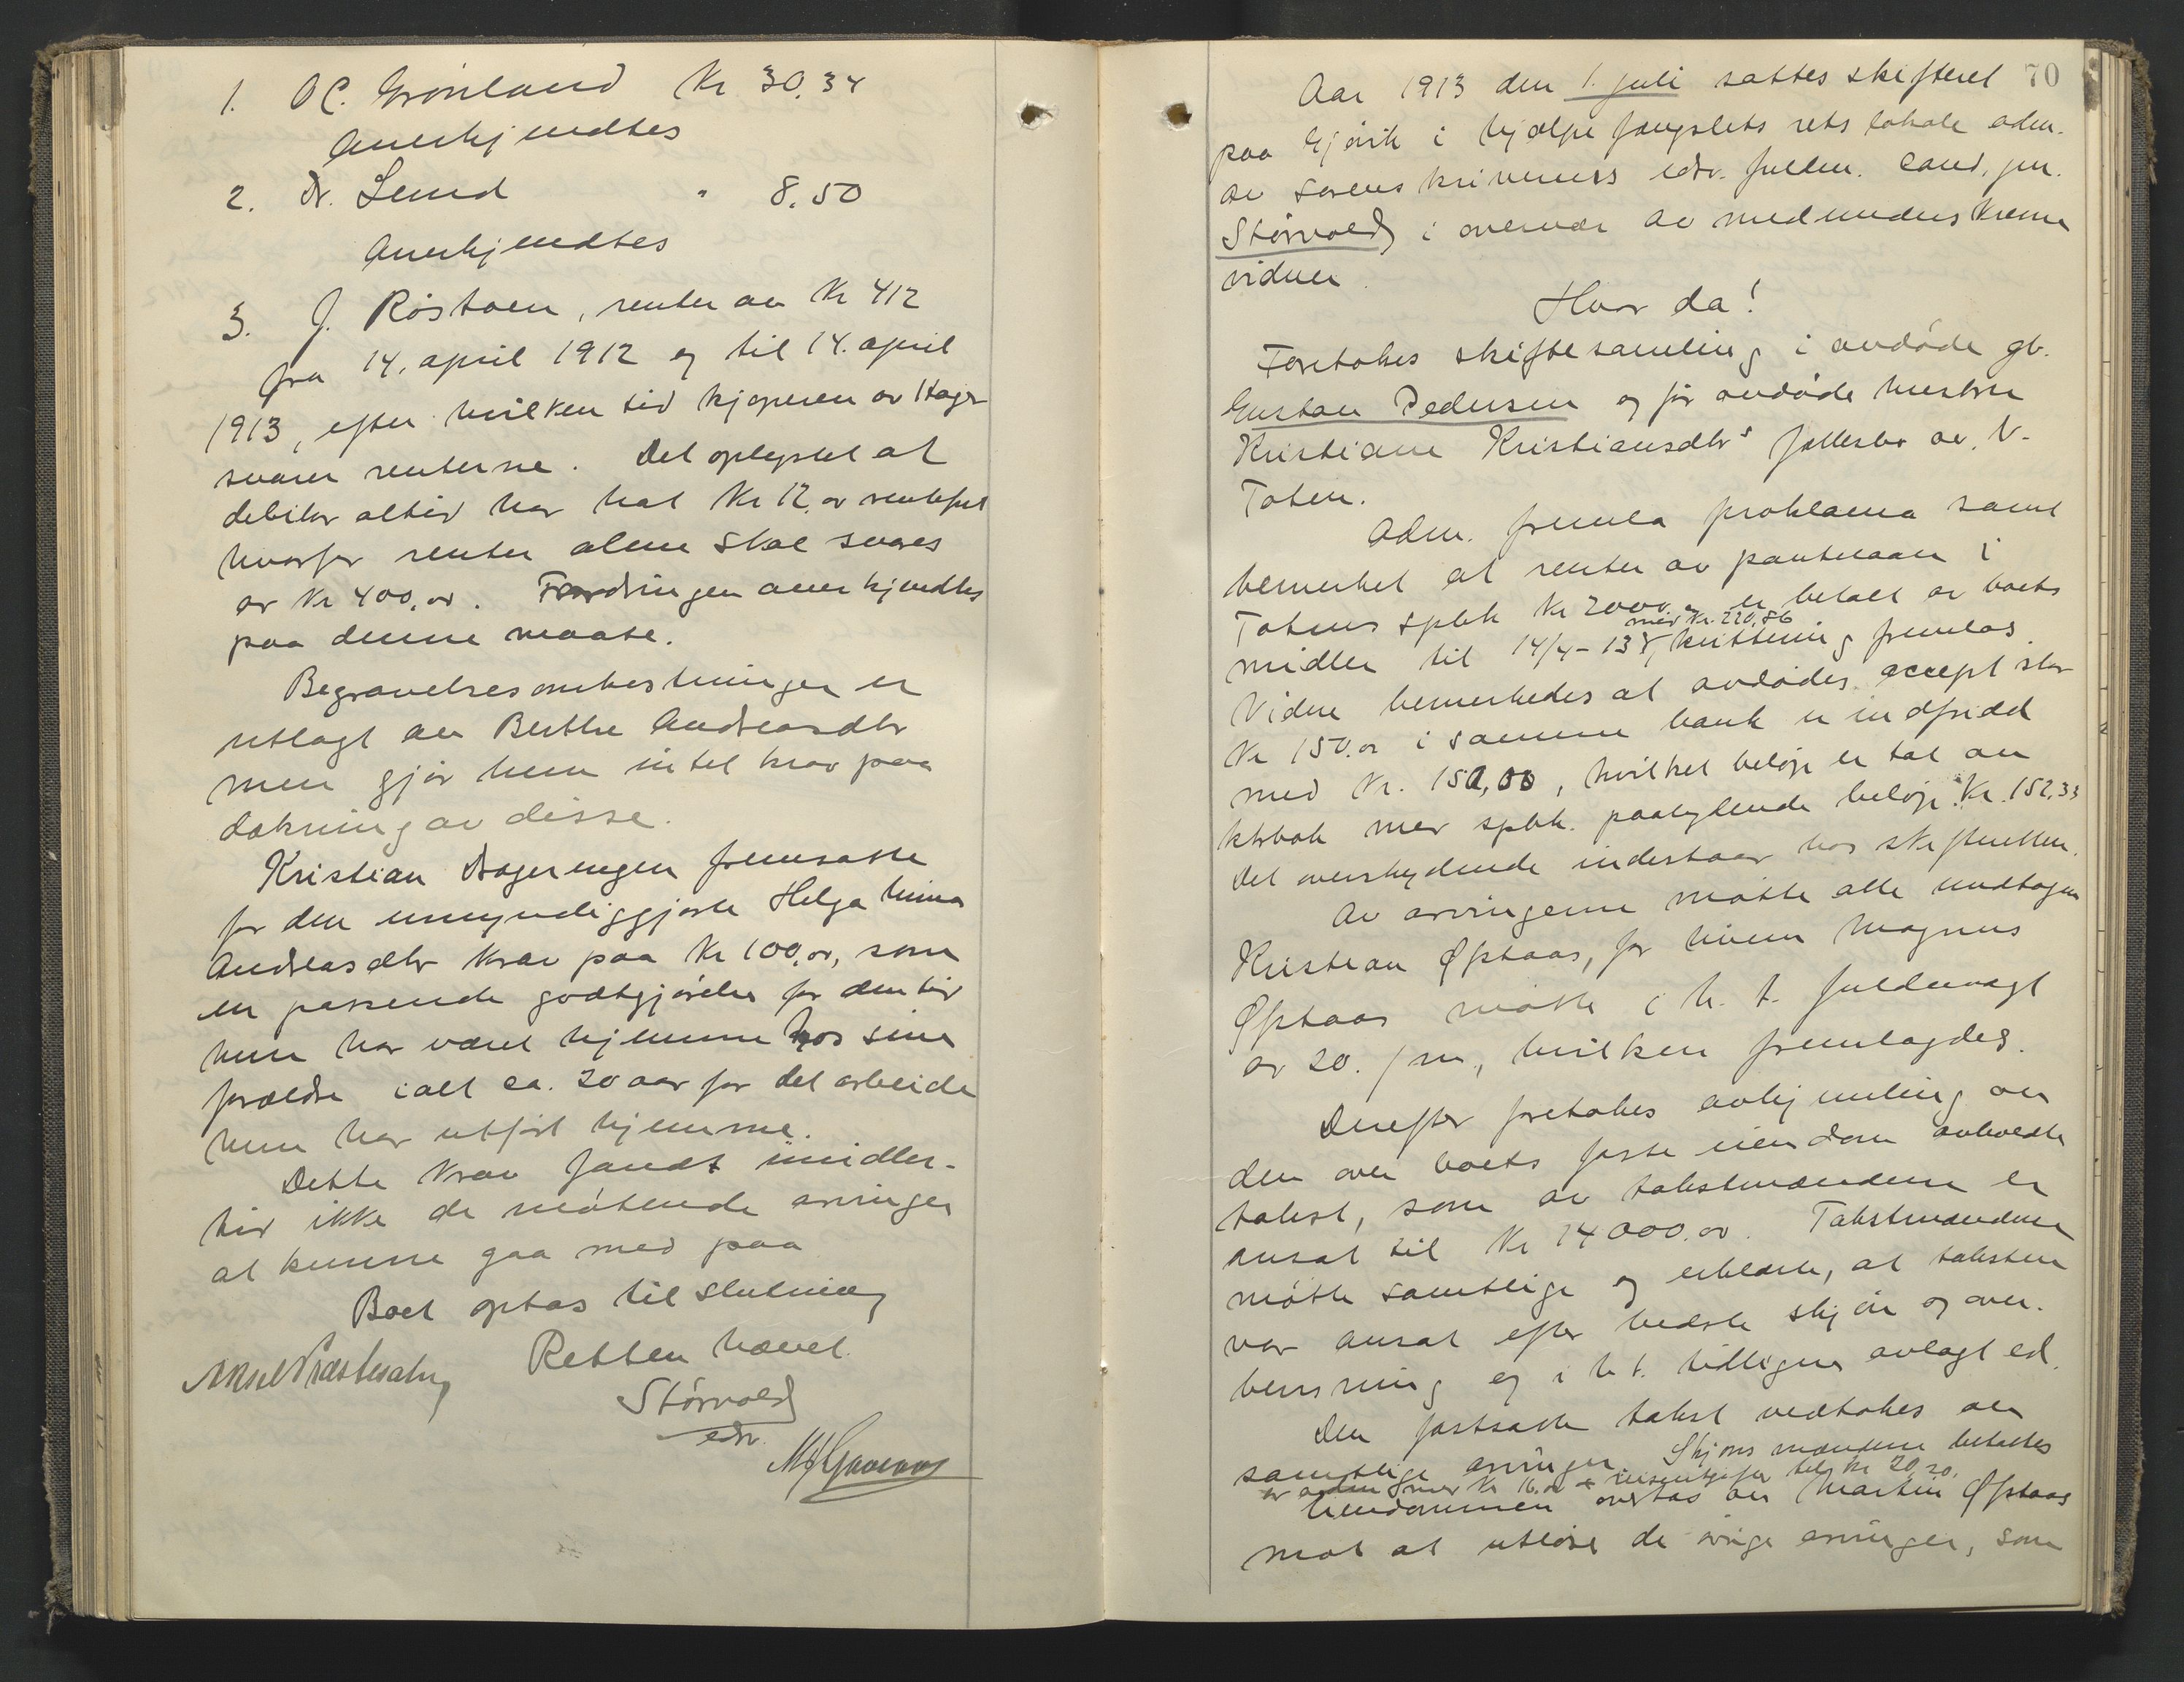 1. O C. Grönland Kr 30,34
Anerkjendtes
2. Dr. Lund " 8,50
Anerkjendtes
3. J. Röstoen, renter av Kr 412
fra 14. april 1912 og til 14. april
1913, efter hvilken tid kjøperen av Hager
svarer renterne. Det oplystes at
debitor altid har hat Kr 12,00 rentefrit
hvorfor renter alene skal svares
av Kr 400,00. Fordringen anerkjendtes
paa denne maate.
Begravelsesomkostninger er
utlagt av Berthe Andreasdtr
men gjør hun intet krav paa
dækning av disse.
Kristian Dageringen fremsatte
for den umyndiggjorte Helga Mina
Andreasdtr krav paa Kr 100,00, som
en passende godtgjörelse for den tid
hun har været hjemme hos sine
forældre ialt ca. 20 aar for det arbeide
hun har utfört hjemme.
Dette krav fandt imidler-
tid ikke de mötende arvinger
at kunne gaa med paa
Boet optas til slutning
Retten hævet.
Aksel Præstesæter
Störvold
edv.
70
Aar 1913 den 1. juli sattes skifteret
paa Gjövik i hjælpefængslets rets lokale adm.
av sorenskriverens edsv. fuldm. cand. jur.
Störvold i overvær av medunderskrevne
vidner.
Hvor da!
Foretokes skiftesamling i avdöde gb.
Gustav Pedersen og før avdöde hustru
Kristiane Kristiansdtrs fællesbo av V-
Toten.
Adm. fremla proklama samt
bemerket at renter av pantelaan i
Totens spbk Kr 2000,00 er betalt av boets
med Kr. 220,86
midler til 14/4-13, kvittering fremlas.
Videre bemerkedes at avdödes accept stor
Kr 150,00 i samme bank er indfridd
med Kr. 150,00, hvilket belöp er tat av
ktrbok mer spbk. paalydende belöp Kr. 152,33
Det overskydende indestaar hos skifteretten.
Av arvingerne mötte alle undtagen
Kristian Öfstaas, for hvem Magnus
Öfstaas mötte i h. t. fuldmagt
av 20. f m., hvilken fremlagdes.
Derefter foretokes avhjemling av
den over boets faste eiendom avholdte
takst, som av takstmændene er
ansat til Kr 14000,00. Takstmændene
mötte samtlige og erklærte, at taksten
var ansat efter bedste skjön og over-
bevisning og i h t. tidligere avlagt ed.
Den fastsatte takst vedtokes av
samtlige arvinger. Skjönsmændene betaltes
av adm med Kr 16.00 + reiseutgifter tils Kr 20,20.
Eiendommen overtas av Martin Öfstaas
mot at utlöse de övrige arvinger, som